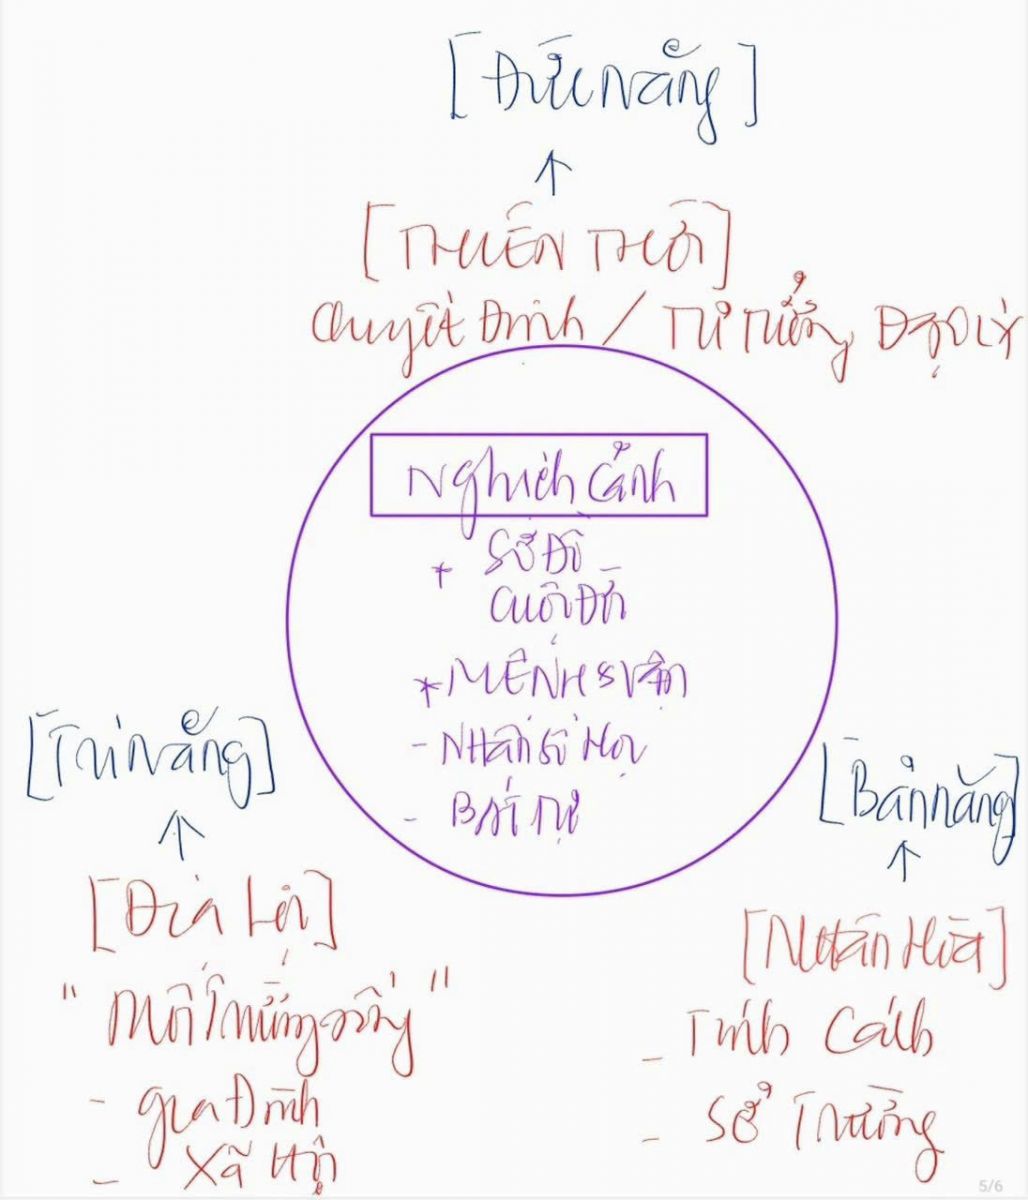 [Đức Năng]
[THIÊN THỜI]
Quyết Định / Tư Tưởng Đạo Lý
Nghịch Cảnh
* Sơ Đồ
Cuộc Đời
* MỆNH & Vận
- Nhân Số Học
- BÁT Tự
[Trí Năng]
[Bản năng]
[Địa Lợi]
[Nhân Hòa]
" Môi Trường sống "
- Tính Cách
- gia Đình
- Sở Trường
- Xã Hội
5/6